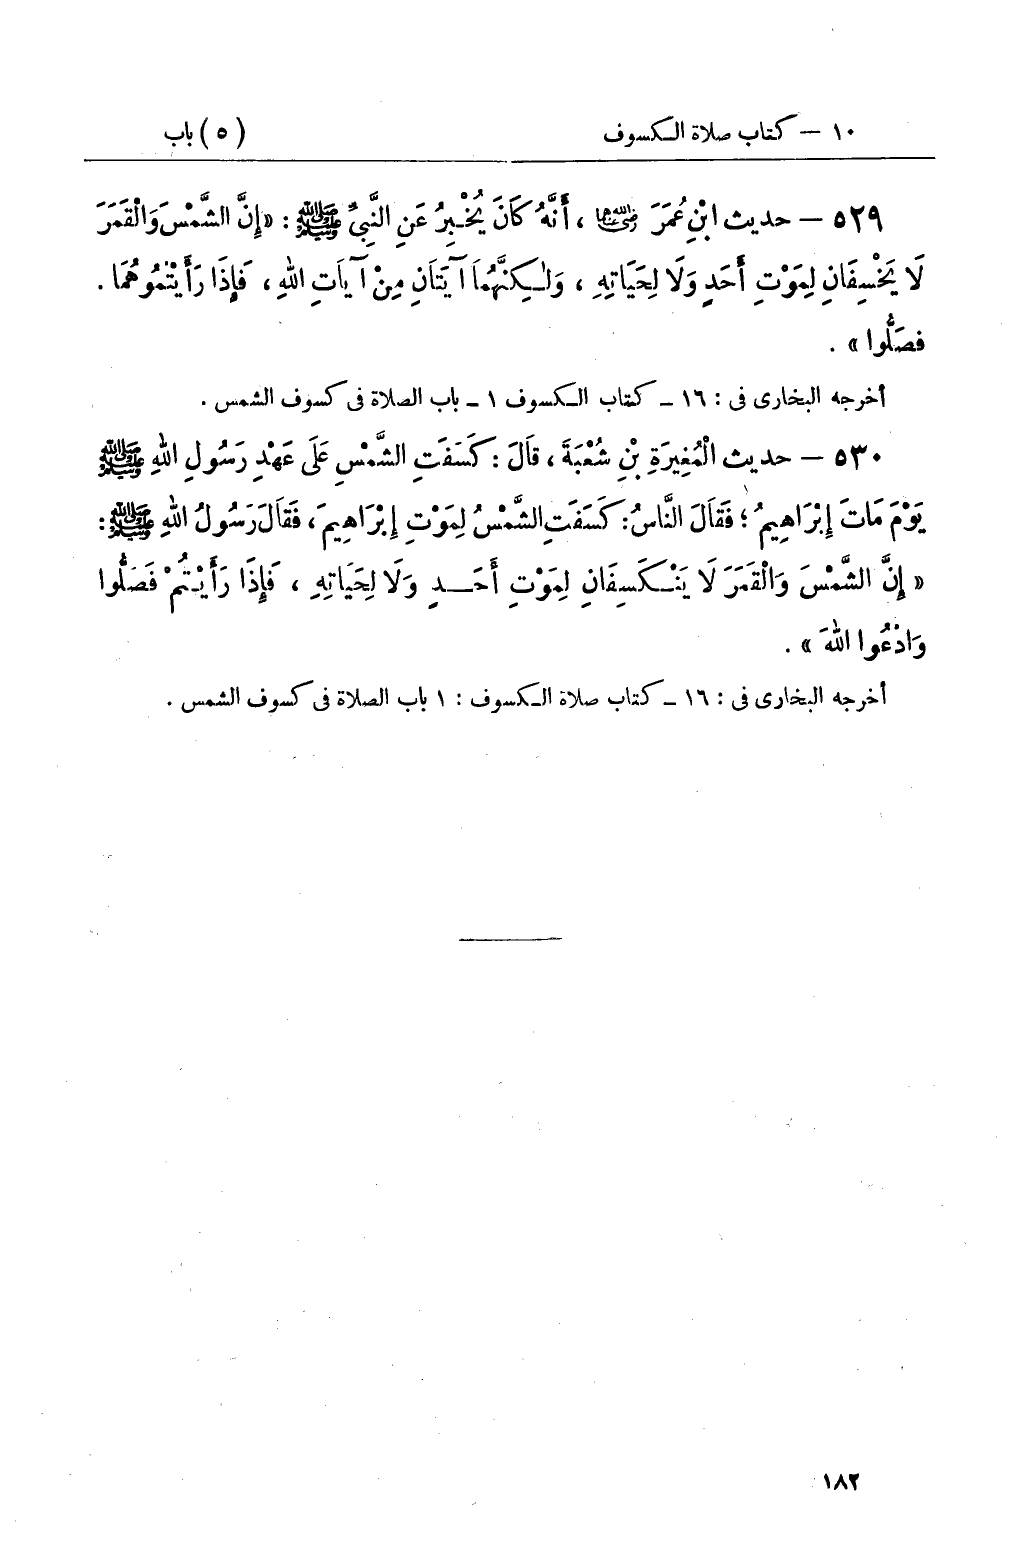 ١٠ – كتاب صلاة الكسوف (٥) باب
٥٢٩ – حديث ابْنِ عُمَرَ رضي الله عنهما ، أَنَّهُ كَانَ يُخْبِرُ عَنِ النَّبِيِّ ﷺ : «إِنَّ الشَّمْسَ وَالْقَمَرَ
لَا يَخْسِفَانِ لِمَوْتِ أَحَدٍ وَلَا لِحَيَاتِهِ ، وَلٰكِنَّهُمَا آيَتَانِ مِنْ آيَاتِ اللهِ ، فَإِذَا رَأَيْتُمُوهُمَا .
فَصَلُّوا » .
أخرجه البخارى فى : ١٦ – كتاب الكسوف ١ – باب الصلاة فى كسوف الشمس .
٥٣٠ – حديث الْمُغِيرَةِ بْنِ شُعْبَةَ ، قَالَ : كَسَفَتِ الشَّمْسِ عَلَى عَهْدِ رَسُولِ اللهِ ﷺ
يَوْمَ مَاتَ إِبْرَاهِيمُ ؛ فَقَالَ النَّاسُ : كَسَفَتِ الشَّمْسُ لِمَوْتِ إِبْرَاهِيمَ ، فَقَالَ رَسُولُ اللهِ ﷺ :
« إِنَّ الشَّمْسَ وَالْقَمَرَ لَا يَنْكَسِفَانِ لِمَوْتِ أَحَدٍ وَلَا لِحَيَاتِهِ ، فَإِذَا رَأَيْتُمْ فَصَلُّوا
وَادْعُوا اللهَ » .
أخرجه البخارى فى : ١٦ – كتاب صلاة الكسوف : ١ باب الصلاة فى كسوف الشمس .
١٨٢